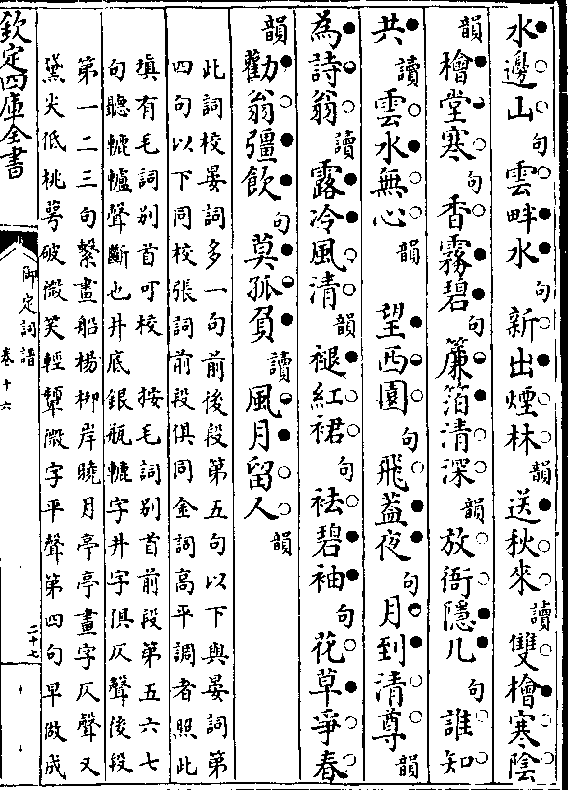 水邊山句雲畔水句新出煙林韻送秋來讀雙檜寒陰
韻檜堂寒句香霧碧句簾箔清深韻放衙隱几句誰知
共讀雲水無心韻望西園句飛蓋夜句月到清尊韻
為詩翁讀露冷風清韻褪紅裙句袪碧袖句花草爭春
韻勸翁彊飲句莫孤負讀風月留人韻
此詞校晏詞多一句前後段第五句以下與晏詞第
四句以下同校張詞前段俱同金詞高平調者照此
填有毛詞别首可校按毛詞别首前段第五六七
句聽轆轤聲斷也井底銀瓶轆字井字俱仄聲後段
第一二三句繫畫船楊柳岸曉月亭亭畫字仄聲又
黛尖低桃萼破微笑輕顰微字平聲第四句早做成
欽定四庫全書
御定詞譜
卷十六
二十七